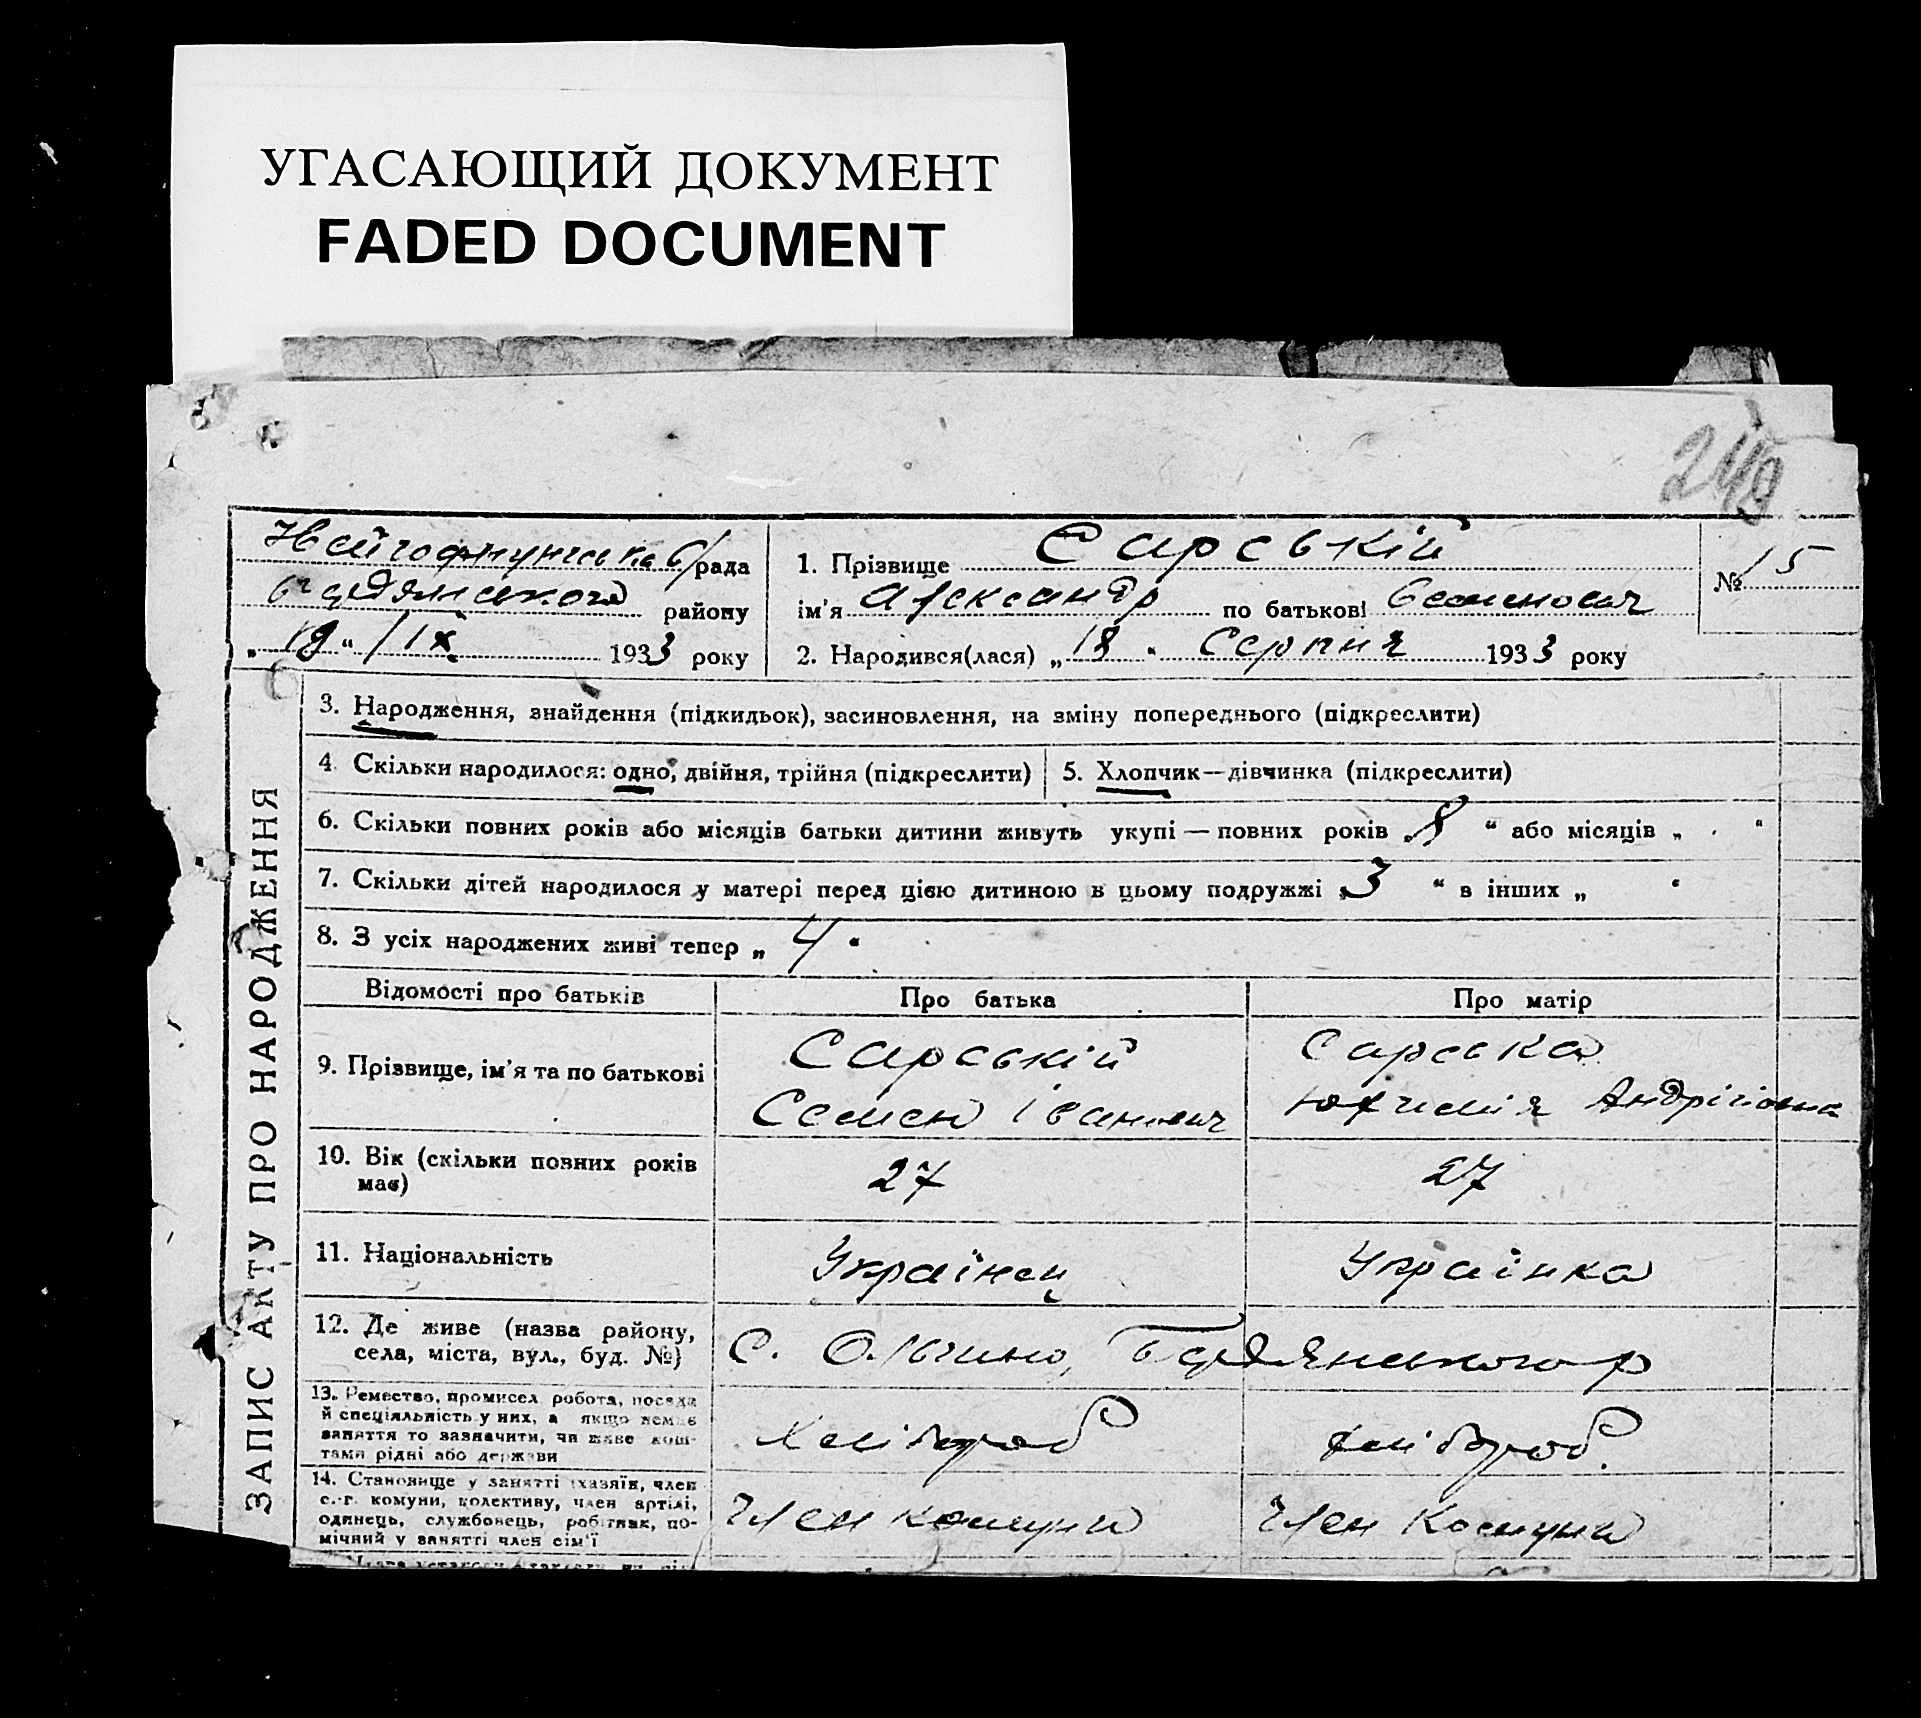 УГАСАЮЩИЙ ДОКУМЕНТ
FADED DOCUMENT
рада
району
„19“ / IX 1933 року
1. Прізвище Сарський
ім'я Александр по батькові Семенович
№ 15
2. Народився(лася) „18“ Серпня 1933 року
ЗАПИС АКТУ ПРО НАРОДЖЕННЯ
3. Народження, знайдення (підкидьок), засиновлення, на зміну попереднього (підкреслити)
4 Скільки народилося: одно, двійня, трійня (підкреслити)
5. Хлопчик—дівчинка (підкреслити)
6. Скільки повних років або місяців батьки дитини живуть укупі — повних років „8“ або місяців „ “
7. Скільки дітей народилося у матері перед цією дитиною в цьому подружжі „3“ в інших „ “
8. З усіх народжених живі тепер „4“
Відомості про батьків Про батька Про матір
9. Прізвище, ім'я та по батькові
Сарській
Семен Іванович
Сарська
Юхимія Андріївна
10. Вік (скільки повних років
має)
27 27
11. Національність Українец Украінка
12. Де живе (назва району,
села, міста, вул., буд. №)
С. р
13. Ремество, промисел робота, посада
й спеціяльність у них, а якщо немає
заняття то зазначити, чи живе кош-
тами рідні або держави
Хліборob Хлібороб.
14. Становище у занятті (хазяїн, член
с.-г. комуни, колективу, член артілі,
одинець, службовець, робітник, по-
мічний у занятті член сім'ї
Член комуни Член Комуни